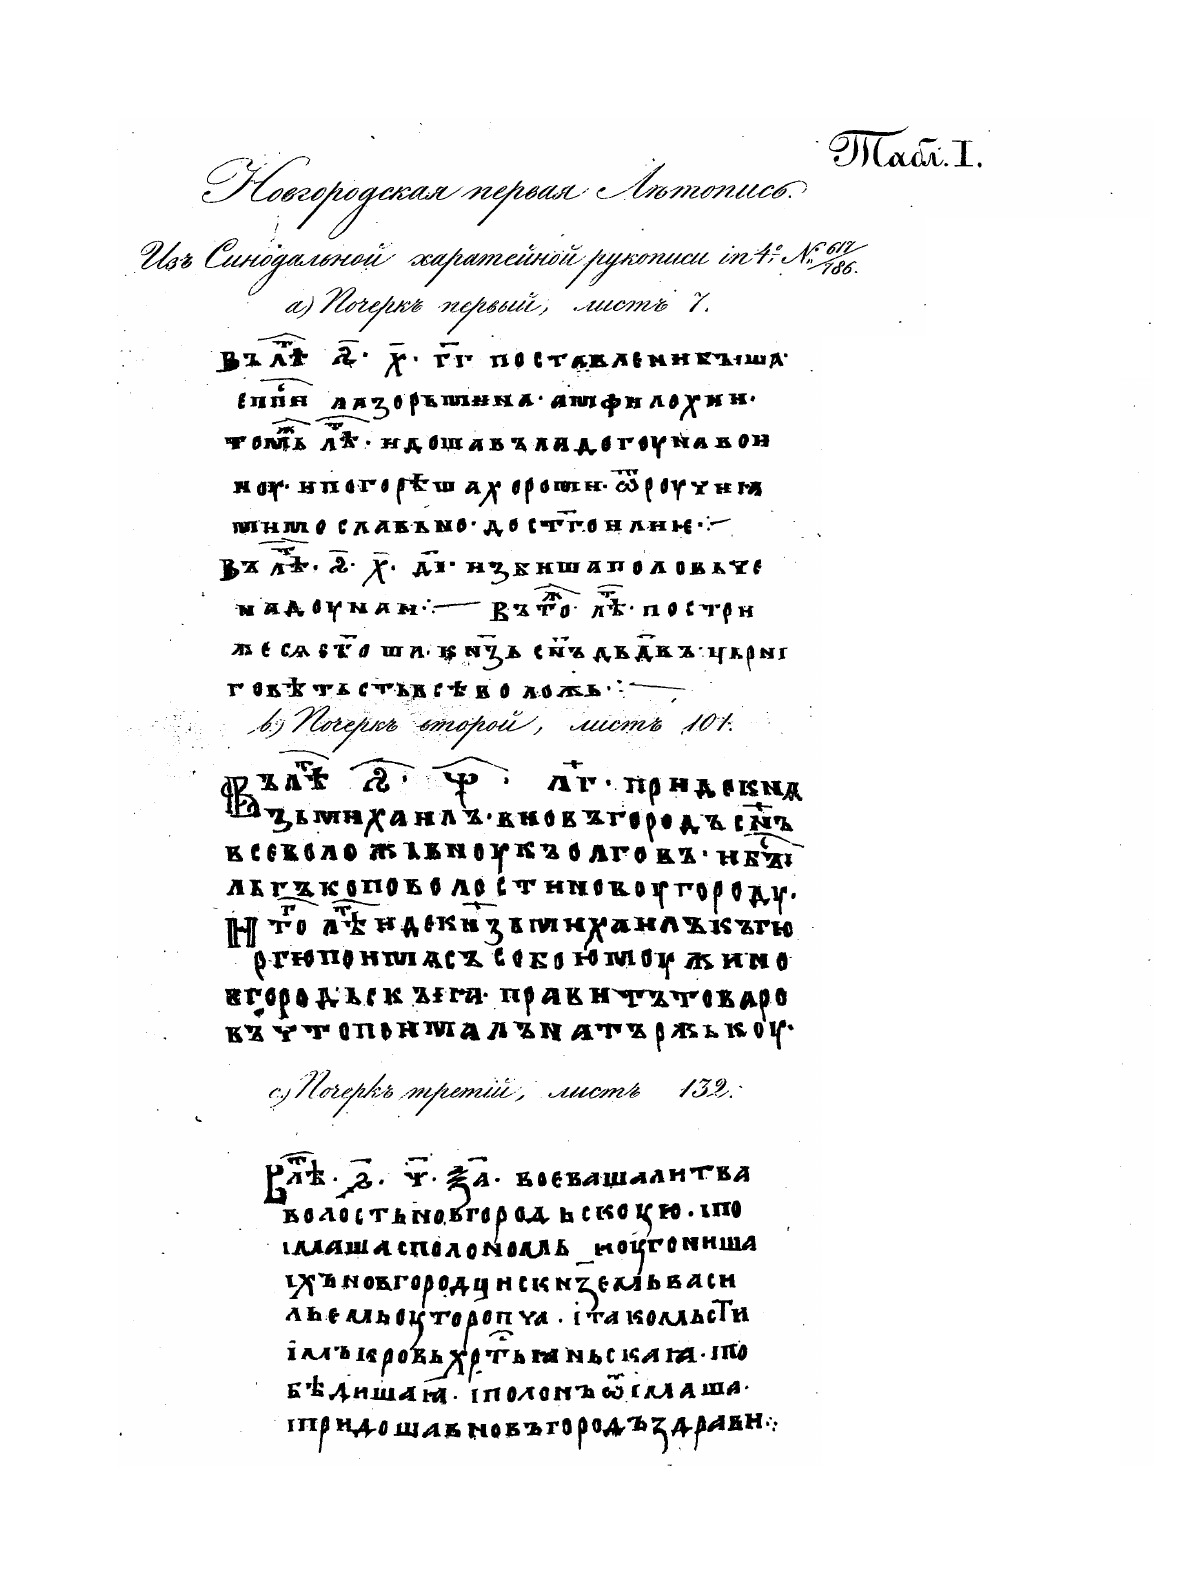 Табл. I.
Новгородская первая Лѣтопись.
Изъ Синодальной харатейной рукописи in 4º № 617/786.
a) Почеркъ первый, листъ 7.
Въ лѣт ҂ѕ· х· гі поставлении быша·
епп҃и лазорь мина· амфилохии·
томь лѣт· идоша въ ладогоу на вои
ноу· и погорѣша хороми· ѿ роучиꙗ
мимо славьно· до ст҃го илиѥ·:—
Въ лѣт· ҂ѕ· х· ді· избиша половьче
на доунаи·:— Въ то ж лѣт· постри
же сѧ ст҃оша· кнѧзь сн҃ъ дв҃двъ· цьрны
говѣ тьсть всѣволожь·:—
b) Почеркъ второй, листъ 101.
Въ лѣт ҂ѕ· ѱ· лг· приде кнѧ
зь михаилъ· в новъгородъ сн҃ъ
всеволожь вноукъ олговъ· и быс
льгъко по волости новоугороду·
И то лѣт иде кн҃зь михаилъ къ гю
ргю поима съ собою моужи но
вгородьскыꙗ· правитъ товаро
въ что поималъ на тържькоу·
c) Почеркъ третій, листъ 132.
В лѣт· ҂ѕ· ѱ· ѯа· воеваша литва
волость новгородьскоую· і по
імаша с полономь ноугониша
іхъ новгородци с кн҃земь васи
льемь оу торопча· і тако мьсти
імъ кровь хр҃тьꙗньскаꙗ· і по
бѣдиша ꙗ· і полонъ ѿімаша·
і придоша в новъгородъ здрави·:·